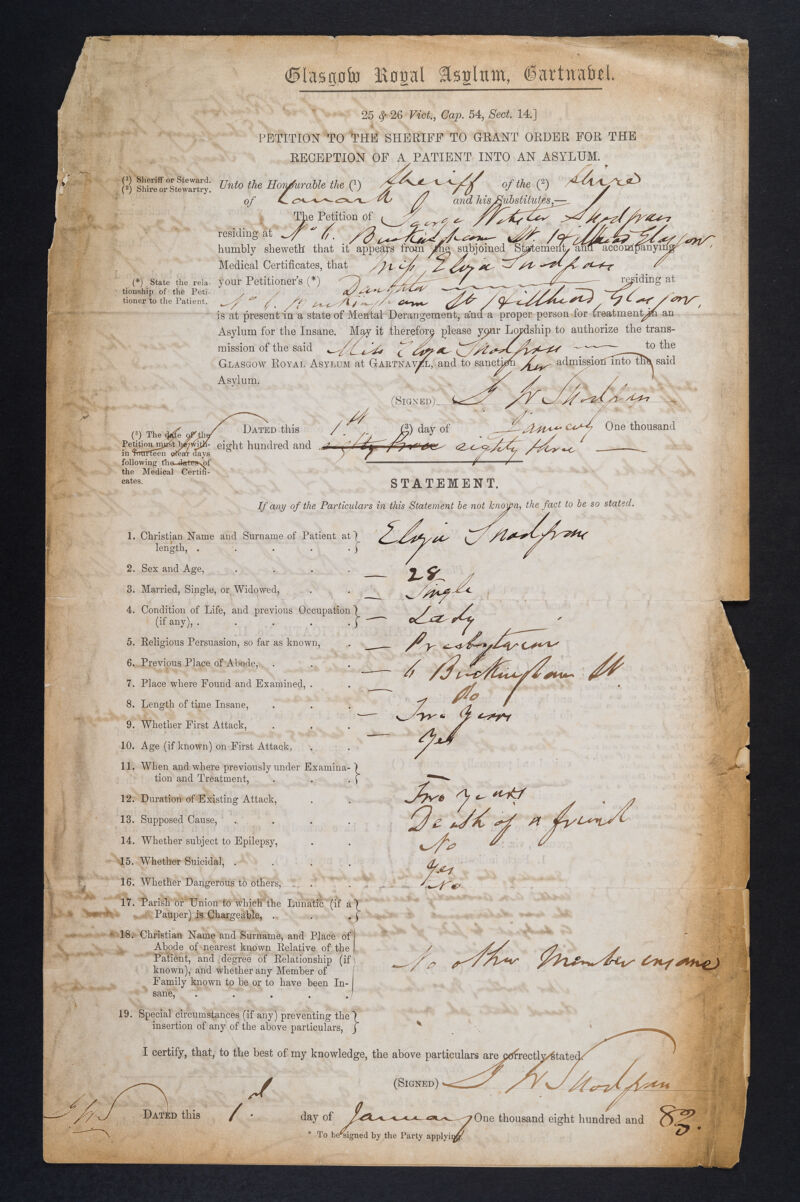 Glasgow Royal Asylum, Gartnavel.
25 & 26 Vict., Cap. 54, Sect. 14.]
PETITION TO THE SHERIFF TO GRANT ORDER FOR THE
RECEPTION OF A PATIENT INTO AN ASYLUM.
(¹) Sheriff or Steward.
(²) Shire or Stewartry.
Unto the Honourable the (¹) Sheriff of the (²) Shire
of Lanark and his Substitutes,—
The Petition of George Webster Snodgrass
residing at No 6. Buckingham St Hillhead Glasgow.
humbly sheweth that it appears from the subjoined Statement, and accompanying
Medical Certificates, that Miss Eliza Snodgrass
(*) State the relationship of the Petitioner to the Patient.
your Petitioner's (*) Daughter residing at
No 6. Buckingham St Hillhead Glasgow.
is at present in a state of Mental Derangement, and a proper person for treatment in an
Asylum for the Insane. May it therefore please your Lordship to authorize the trans-
mission of the said Miss Eliza Snodgrass to the
GLASGOW ROYAL ASYLUM at GARTNAVEL, and to sanction her admission into the said
Asylum.
(SIGNED) G W Snodgrass
(³) The date of the
Petition must be within fourteen clear days
following the dates of
the Medical Certifi-
cates.
DATED this 1st (³) day of January One thousand
eight hundred and eighty three eighty three
STATEMENT.
If any of the Particulars in this Statement be not known, the fact to be so stated.
1. Christian Name and Surname of Patient at length, . Eliza Snodgrass
2. Sex and Age, — 28
3. Married, Single, or Widowed, — Single
4. Condition of Life, and previous Occupation (if any), . — Lady
5. Religious Persuasion, so far as known, — Presbyterian
6. Previous Place of Abode, — 6 Buckingham St
7. Place where Found and Examined, . — do
8. Length of time Insane, — Two years
9. Whether First Attack, — Yes
10. Age (if known) on First Attack,
11. When and where previously under Examina-
tion and Treatment, —
12. Duration of Existing Attack, Two years
13. Supposed Cause, Death of a friend
14. Whether subject to Epilepsy, No
15. Whether Suicidal, . Yes
16. Whether Dangerous to others, No
17. Parish or Union to which the Lunatic (if a
Pauper) is Chargeable, .
18. Christian Name and Surname, and Place of
Abode of nearest known Relative of the
Patient, and degree of Relationship (if
known), and whether any Member of
Family known to be or to have been In-
sane, No other Member insane
19. Special circumstances (if any) preventing the
insertion of any of the above particulars,
I certify, that, to the best of my knowledge, the above particulars are correctly stated.
(SIGNED) G W Snodgrass
GWS
DATED this 1st day of January One thousand eight hundred and 83.
* To be signed by the Party applying.